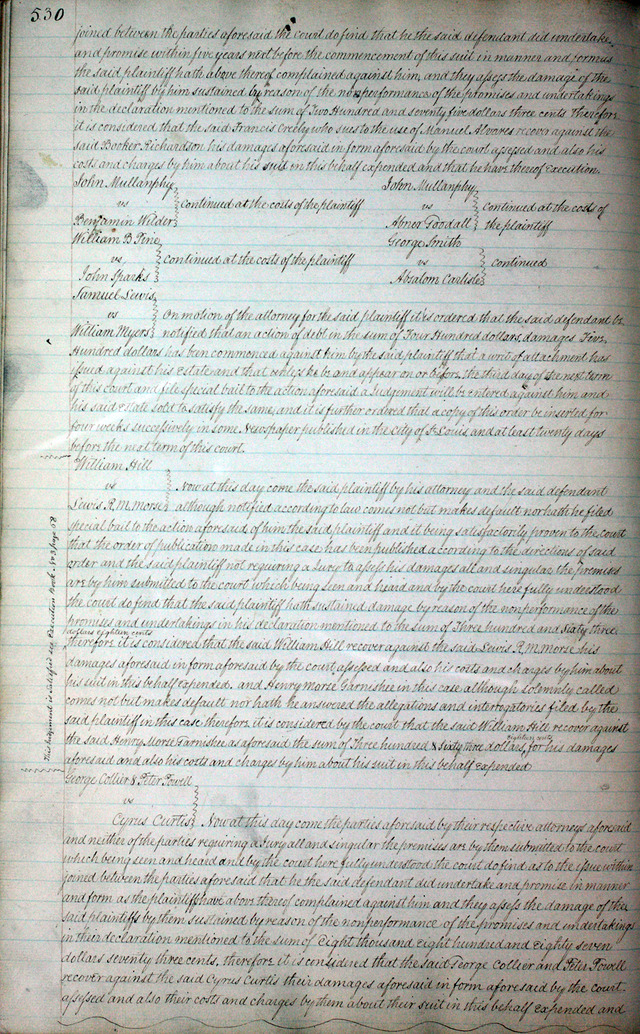 530
joined between the parties aforesaid the court do find that he the said defendant did undertake
and promise within five years next before the commencement of this suit in manner and form as
the said plaintiff hath above thereof complained against him, and they assess the damage of the
said plaintiff by him sustained by reason of the nonperformance of the promises and undertakings
in the declaration mentioned to the sum of Two Hundred and seventy five dollars three cents Therefore
it is considered that the said Francis Creely who sues to the use of Manuel Alvores recover against the
said Booker Richardson his damages aforesaid in form aforesaid by the court assessed and also his
costs and charges by him about his suit on this behalf expended and that he have thereof execution.
John Mullanphy
vs continued at the costs of the plaintiff
Benjamin Wilder
John Mullanphy
vs continued at the costs of
Abner Goodall the plaintiff
William B Pene
vs continued at the costs of the plaintiff
John Sparks
George Smith
vs continued
Absalom Carlisle
Samuel Lewis
vs On motion of the attorney for the said plaintiff it is ordered that the said defendant be
William Myers notified that an action of debt in the sum of Four Hundred dollars, damages Five
Hundred dollars has been commenced against him by the said plaintiff that a writ of attachment has
issued against his estate and that unless he be and appear on or before the third day of the next term
of this court and file special bail to the action aforesaid a Judgement will be entered against him and
his said estate sold to satisfy the same, and it is further ordered that a copy of this order be inserted for
four weeks successively in some Newspaper published in the City of St Louis and at least twenty days
before the next term of this court.
William Hill
vs Now at this day come the said plaintiff by his attorney and the said defendant
Lewis R. M. Morse although notified according to law comes not but makes default nor hath he filed
special bail to the action aforesaid of him the said plaintiff and it being satisfactorily proven to the court
that the order of publication made in this case has been published according to the directions of said
order and the said plaintiff not requiring a Jury to assess his damages all and singular the premises
are by him submitted to the court which being seen and heard and by the court here fully understood
the court do find that the said plaintiff hath sustained damage by reason of the nonperformance of the
promises and undertakings in his declaration mentioned to the sum of Three hundred and Sixty three
dollars eighteen cents
Therefore it is considered that the said William Hill recover against the said Lewis R. M Morse his
damages aforesaid in form aforesaid by the court assessed and also his costs and charges by him about
his suit in this behalf expended. and Henry Morse Garnishee in this case although solemnly called
comes not but makes default nor hath he answered the allegations and interogatories filed by the
said plaintiff in this case therefore it is considered by the court that the said William Hill recover against
eighteen cents
the said Henry Morse Garnishee as aforesaid the sum of Three hundred & Sixty three dollars, for his damages
aforesaid and also his costs and charges by him about his suit in this behalf expended
This judgement is satisfied see Execution Book No 3 page 58
George Collier & Peter Powell
vs
Cyrus Curtis Now at this day come the parties aforesaid by their respective attorneys aforesaid
and neither of the parties requiring a Jury all and singular the premises are by them submitted to the court
which being seen and heard and by the court here fully understood the court do find as to the issue within
joined between the parties aforesaid that he the said defendant did undertake and promise in manner
and form as the plaintiffs have above thereof complained against him and they assess the damage of the
said plaintiffs by them sustained by reason of the nonperformance of the promises and undertakings
in their declaration mentioned to the sum of Eight thousand Eight hundred and Eighty seven
dollars seventy three cents. therefore it is considered that the said George Collier and Peter Powell
recover against the said Cyrus Curtis their damages aforesaid in form aforesaid by the court
assessed and also their costs and charges by them about their suit in this behalf expended and